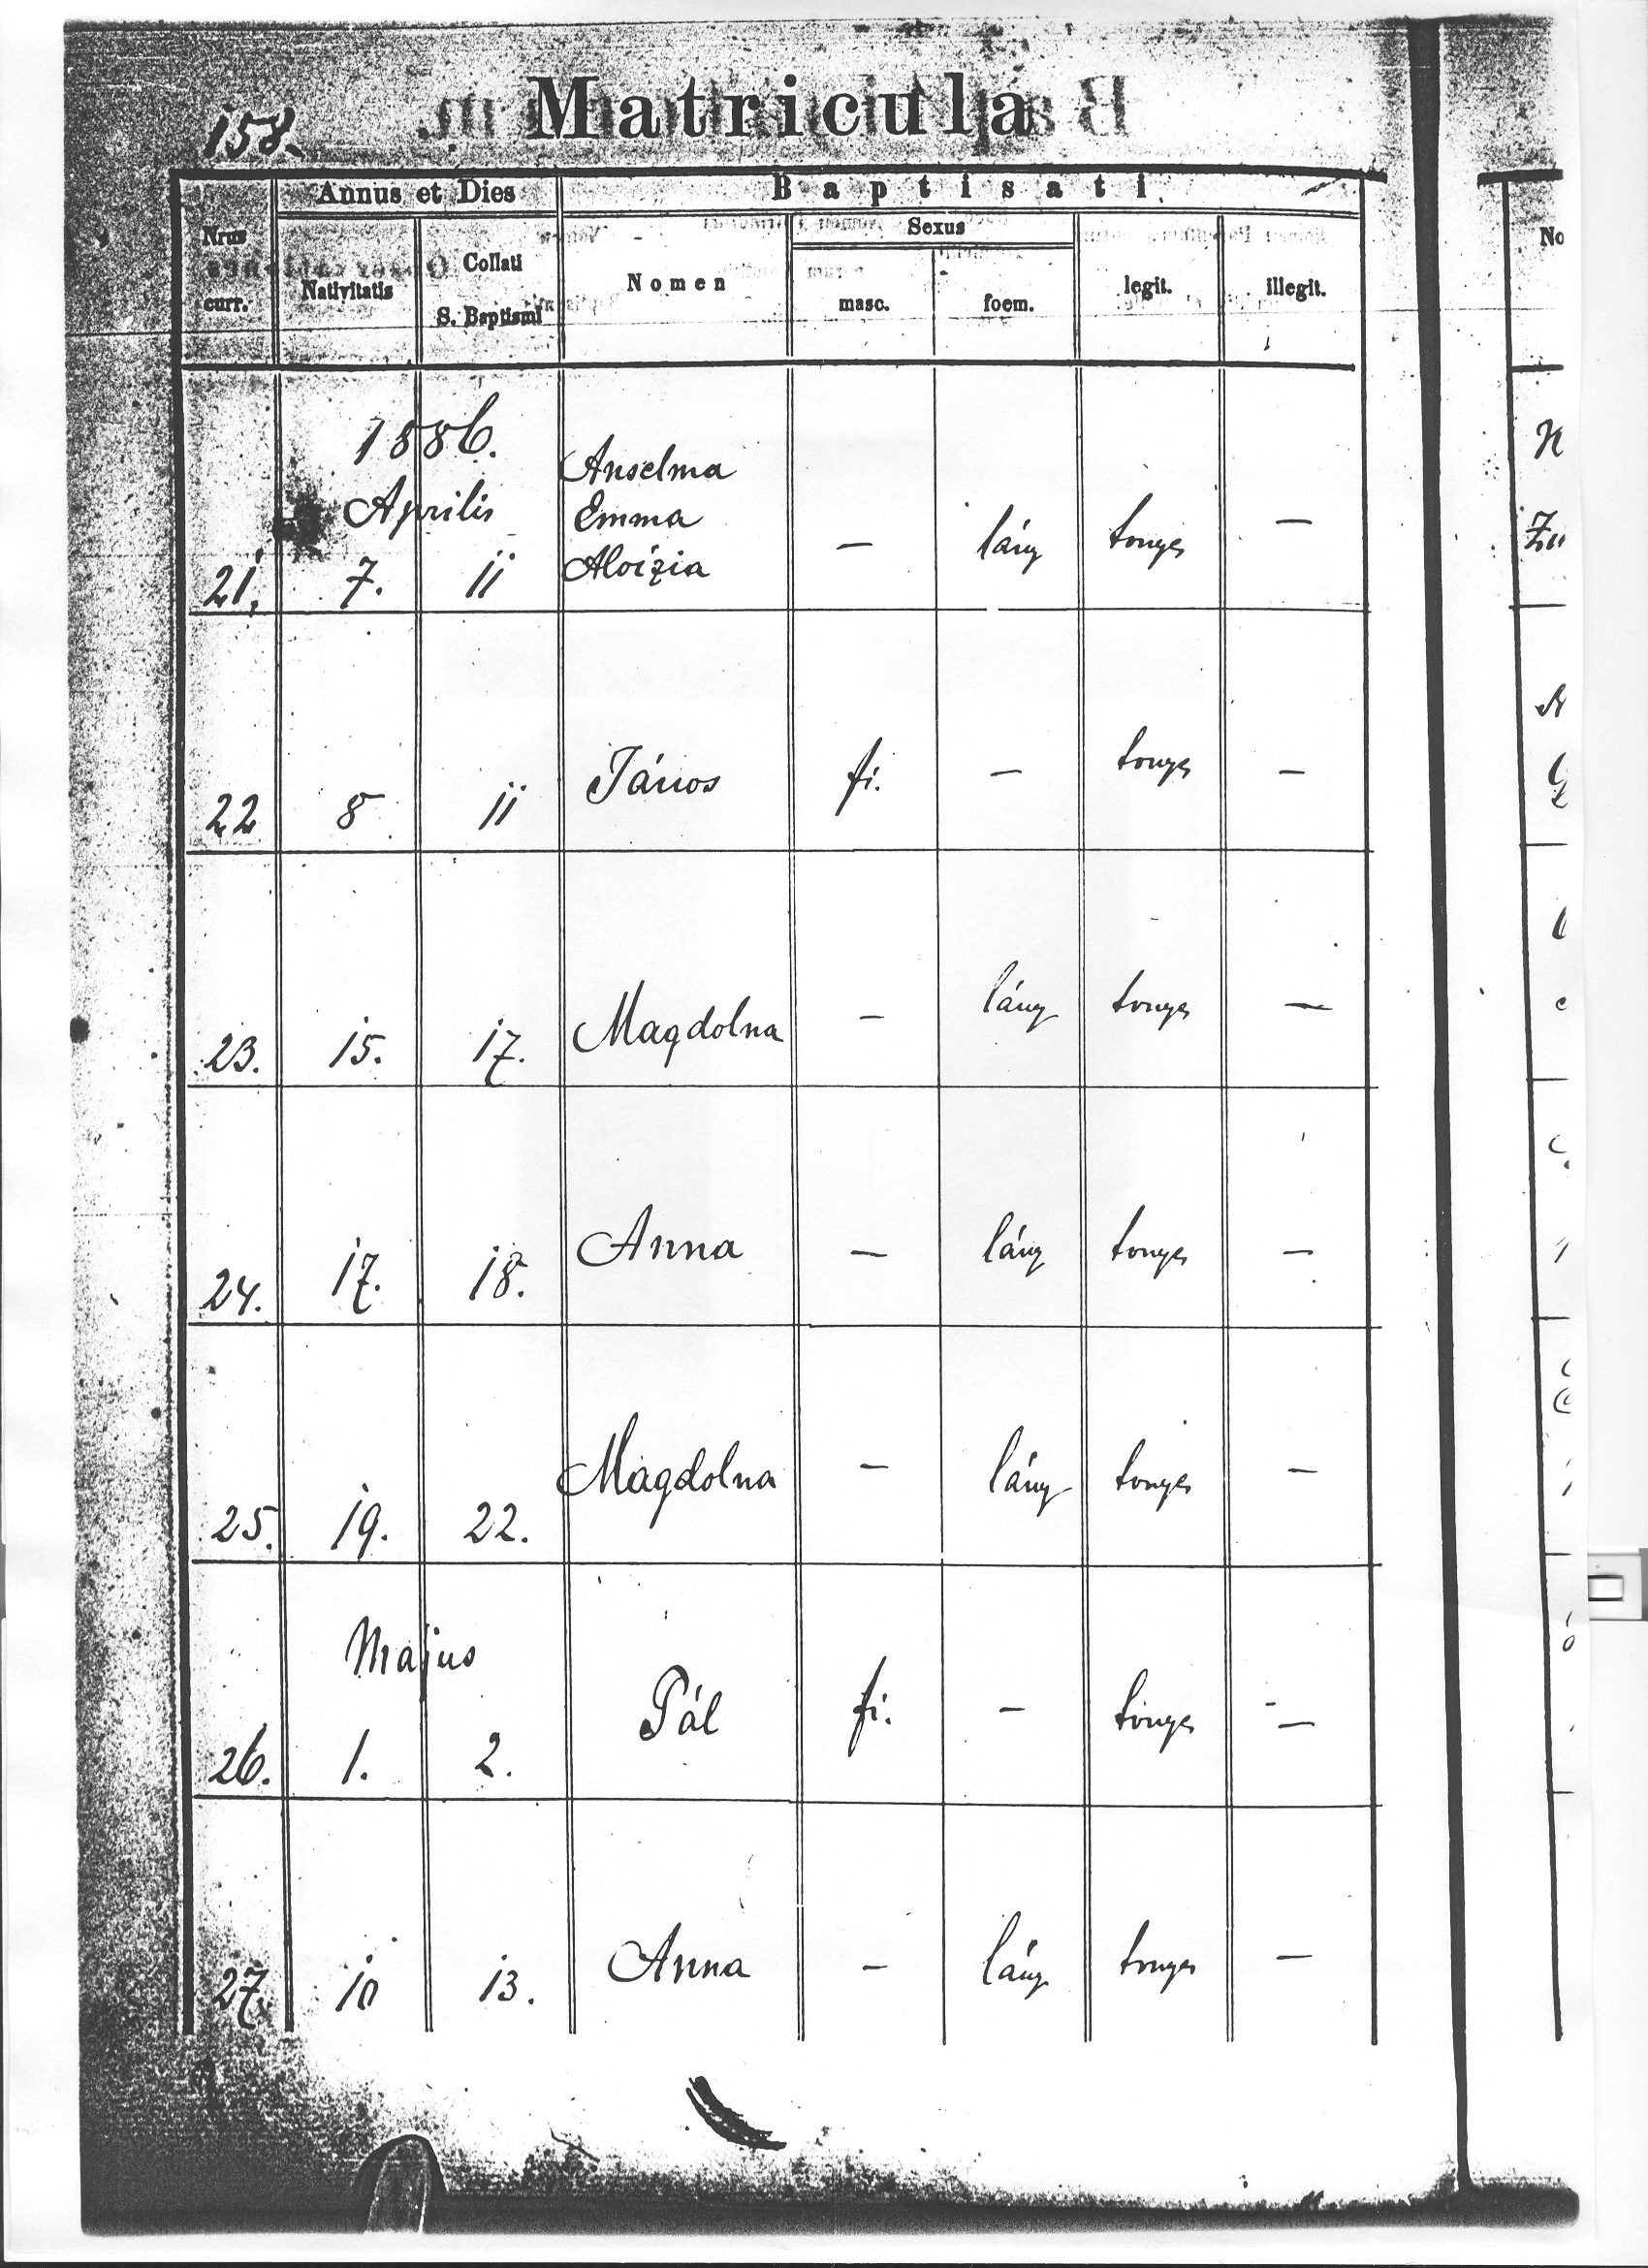 158.
Matricula
Nrus curr.
Annus et Dies
Nativitatis
Collati S. Baptismi
Baptisati
Nomen
Sexus
masc.
foem.
legit.
illegit.
No
1886.
Aprilis
21. 7. 11 Anselma Emma Aloízia — lány tvnyes —
22 8 11 János fi. — tvnyes —
23. 15. 17. Magdolna — lány tvnyes —
24. 17. 18. Anna — lány tvnyes —
25. 19. 22. Magdolna — lány tvnyes —
Majus
26. 1. 2. Pál fi. — tvnyes —
27. 10 13. Anna — lány tvnyes —